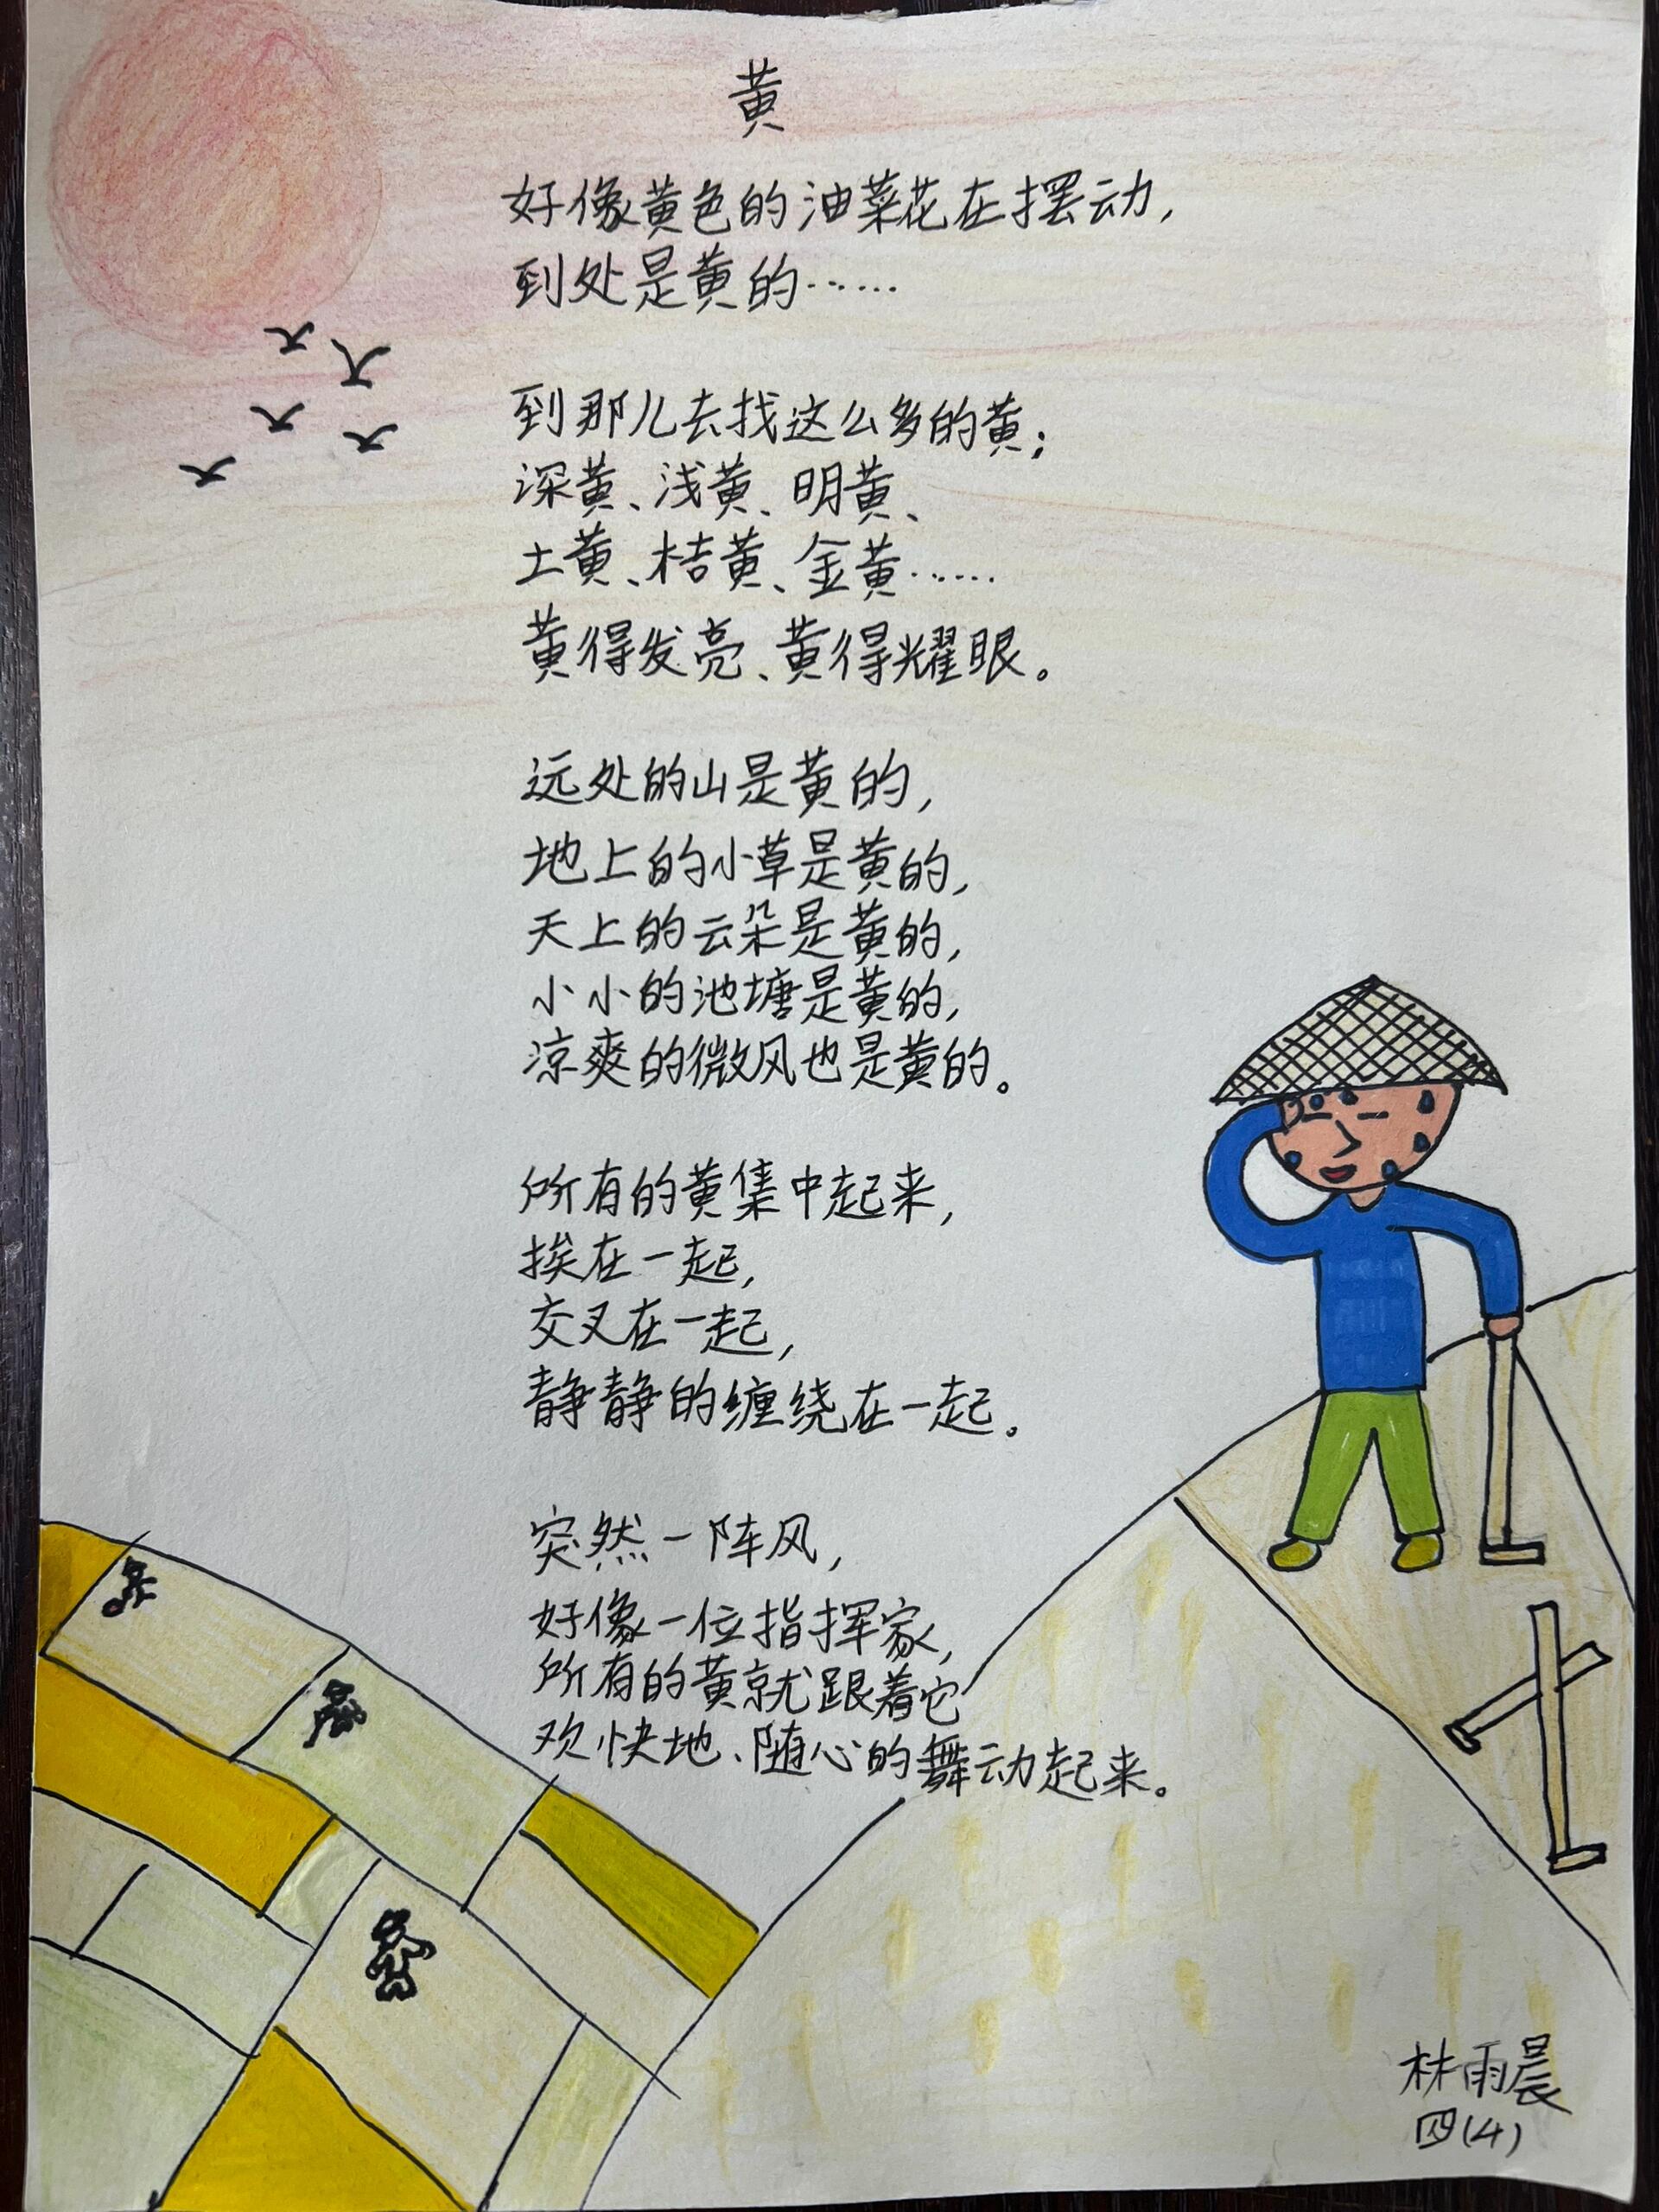 黄
好像黄色的油菜花在摆动，
到处是黄的……
到那儿去找这么多的黄；
深黄、浅黄、明黄、
土黄、桔黄、金黄……
黄得发亮、黄得耀眼。
远处的山是黄的，
地上的小草是黄的，
天上的云朵是黄的，
小小的池塘是黄的，
凉爽的微风也是黄的。
所有的黄集中起来，
挨在一起，
交叉在一起，
静静的缠绕在一起。
突然一阵风，
好像一位指挥家，
所有的黄就跟着它
欢快地、随心的舞动起来。
林雨晨
四(4)